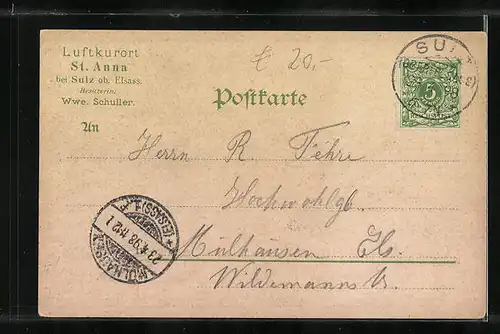 Luftkurort
St. Anna
bei Sulz ob. Elsass.
Besitzerin:
Wwe. Schuller.
£ 20,-
SUL
5
Postkarte
An
Herrn R. Fehre
Hochwohlgb
Mülhausen Els.
Wildemanns
MÜLHAUSEN
(ELSASS)
23 4 98 11-12 V.